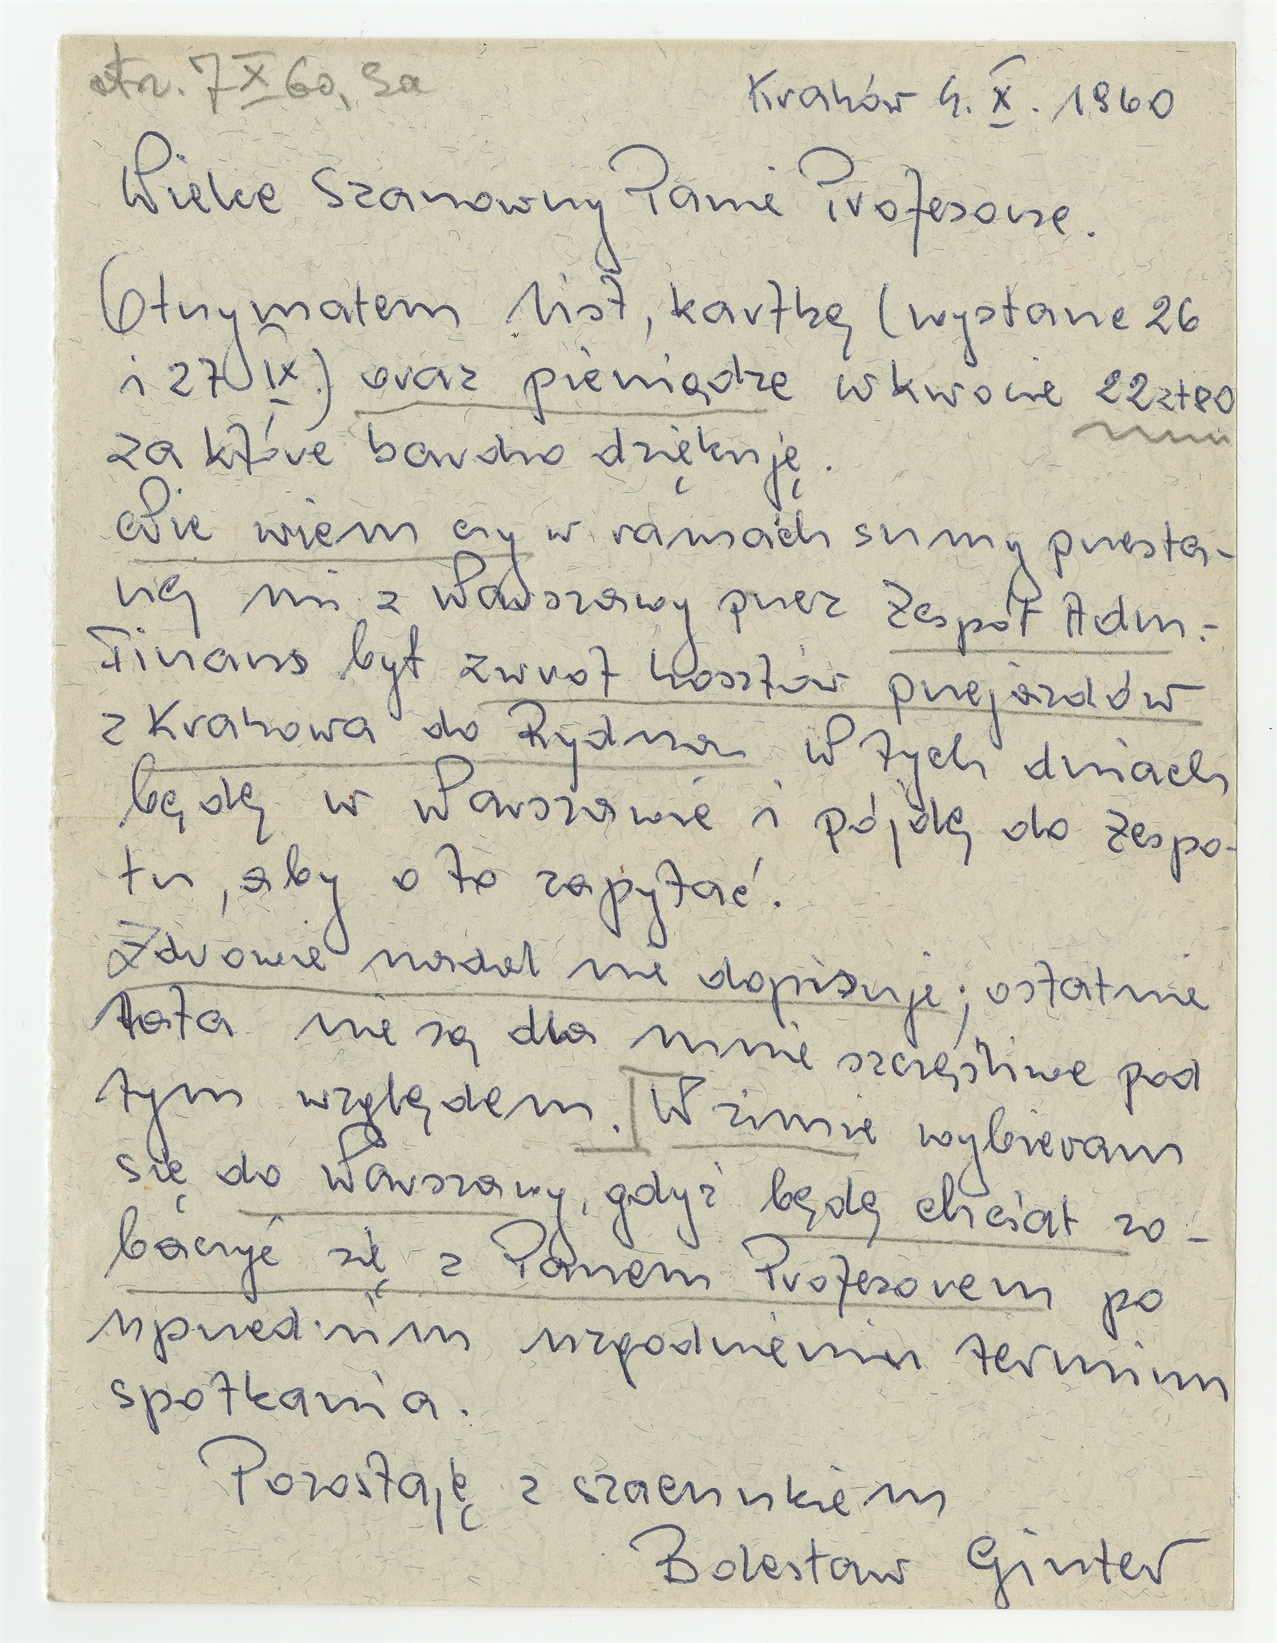 otrz. 7 X 60, Sa
Kraków 4. X. 1960
Wielce Szanowny Panie Profesorze.
Otrzymałem list, kartkę (wysłane 26
i 27 IX.) oraz pieniądze w kwocie 22 zł 80
za które bardzo dziękuję.
Nie wiem czy w ramach sumy przesła-
nej mi z Warszawy przez Zespół Adm.-
Finans był zwrot kosztów przejazdów
z Krakowa do Rydna. W tych dniach
będę w Warszawie i pójdę do Zespo-
łu, aby o to zapytać.
Zdrowie nadal nie dopisuje; ostatnie
lata nie są dla mnie szczęśliwe pod
tym względem. W zimie wybieram
się do Warszawy, gdyż będę chciał zo-
baczyć się z Panem Profesorem po
uprzednim uzgodnieniu terminu
spotkania.
Pozostaję z szacunkiem
Bolesław Ginter